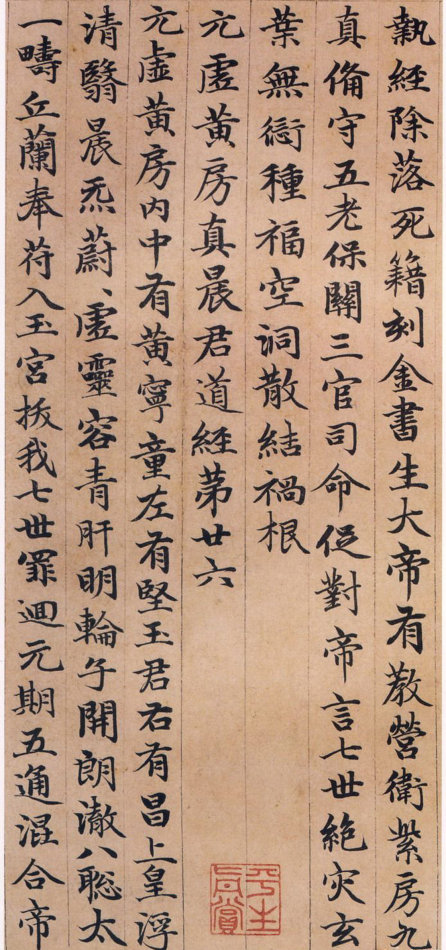 執經除落死籍刻金書生大帝有教營衛紫房九
真俻守五老保關三官司命促對帝言七世絕灾玄
葉無愆種福空洞散結禍根
元虛黃房真晨君道經苐廿六
元虛黃房內中有黃寧童左有堅玉君右有昌上皇浮
清翳晨炁蔚、虛靈容青肝明輪午開朗澈八聡太
一疇丘蘭奉苻入玉宮拔我七世罪迴元期五通混合帝